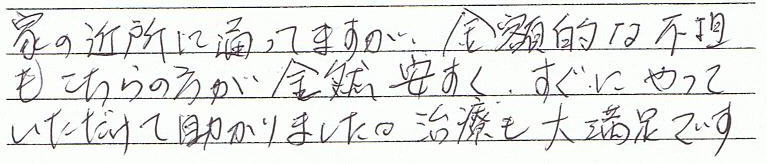 家の近所に通ってますが、金額的な不担
もこちらの方が全然安すく、すぐにやって
いただけて助かりました。治療も大満足です